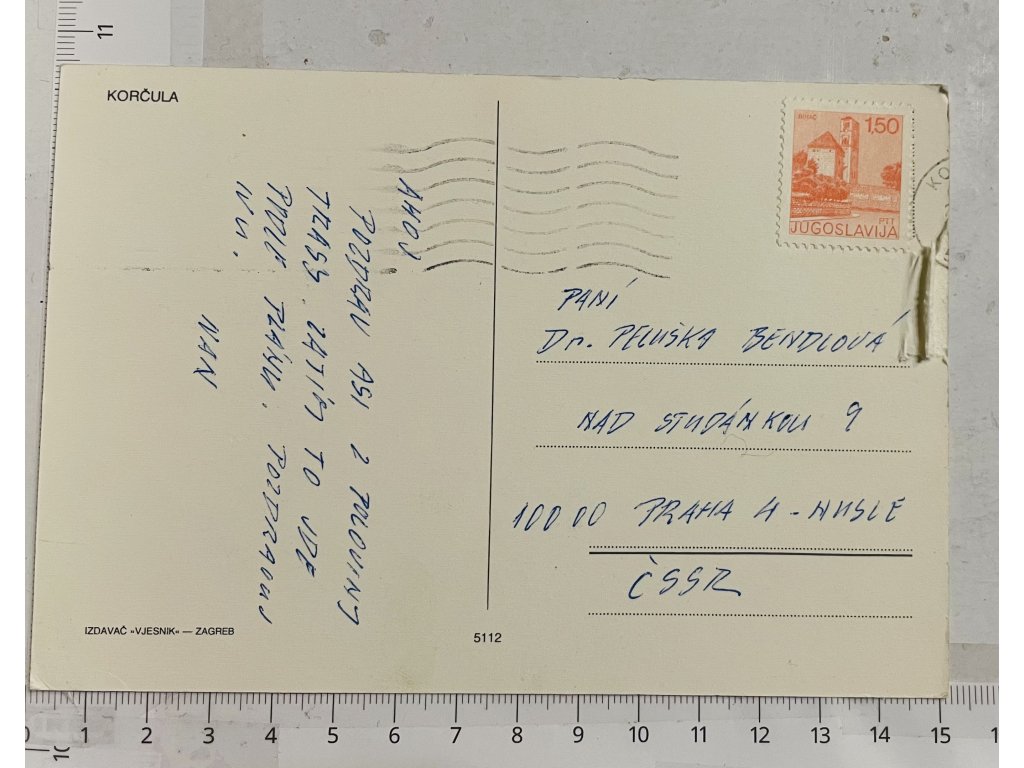 KORČULA
AHOJ
POZDRAV ASI Z POLOVINY
TRASY. ZATÍM TO JDE
PODLE PLÁNU. POZDRAVUJ
IVAN
BIHAĆ
1,50
PTT
JUGOSLAVIJA
KO
PANÍ
Dr. PELUŠKA BENDLOVÁ
NAD STUDÁNKOU 9
100 00 PRAHA 4 - NUSLE
ČSSR
IZDAVAČ »VJESNIK« — ZAGREB
5112
11
0 1 2 3 4 5 6 7 8 9 10 11 12 13 14 15
10